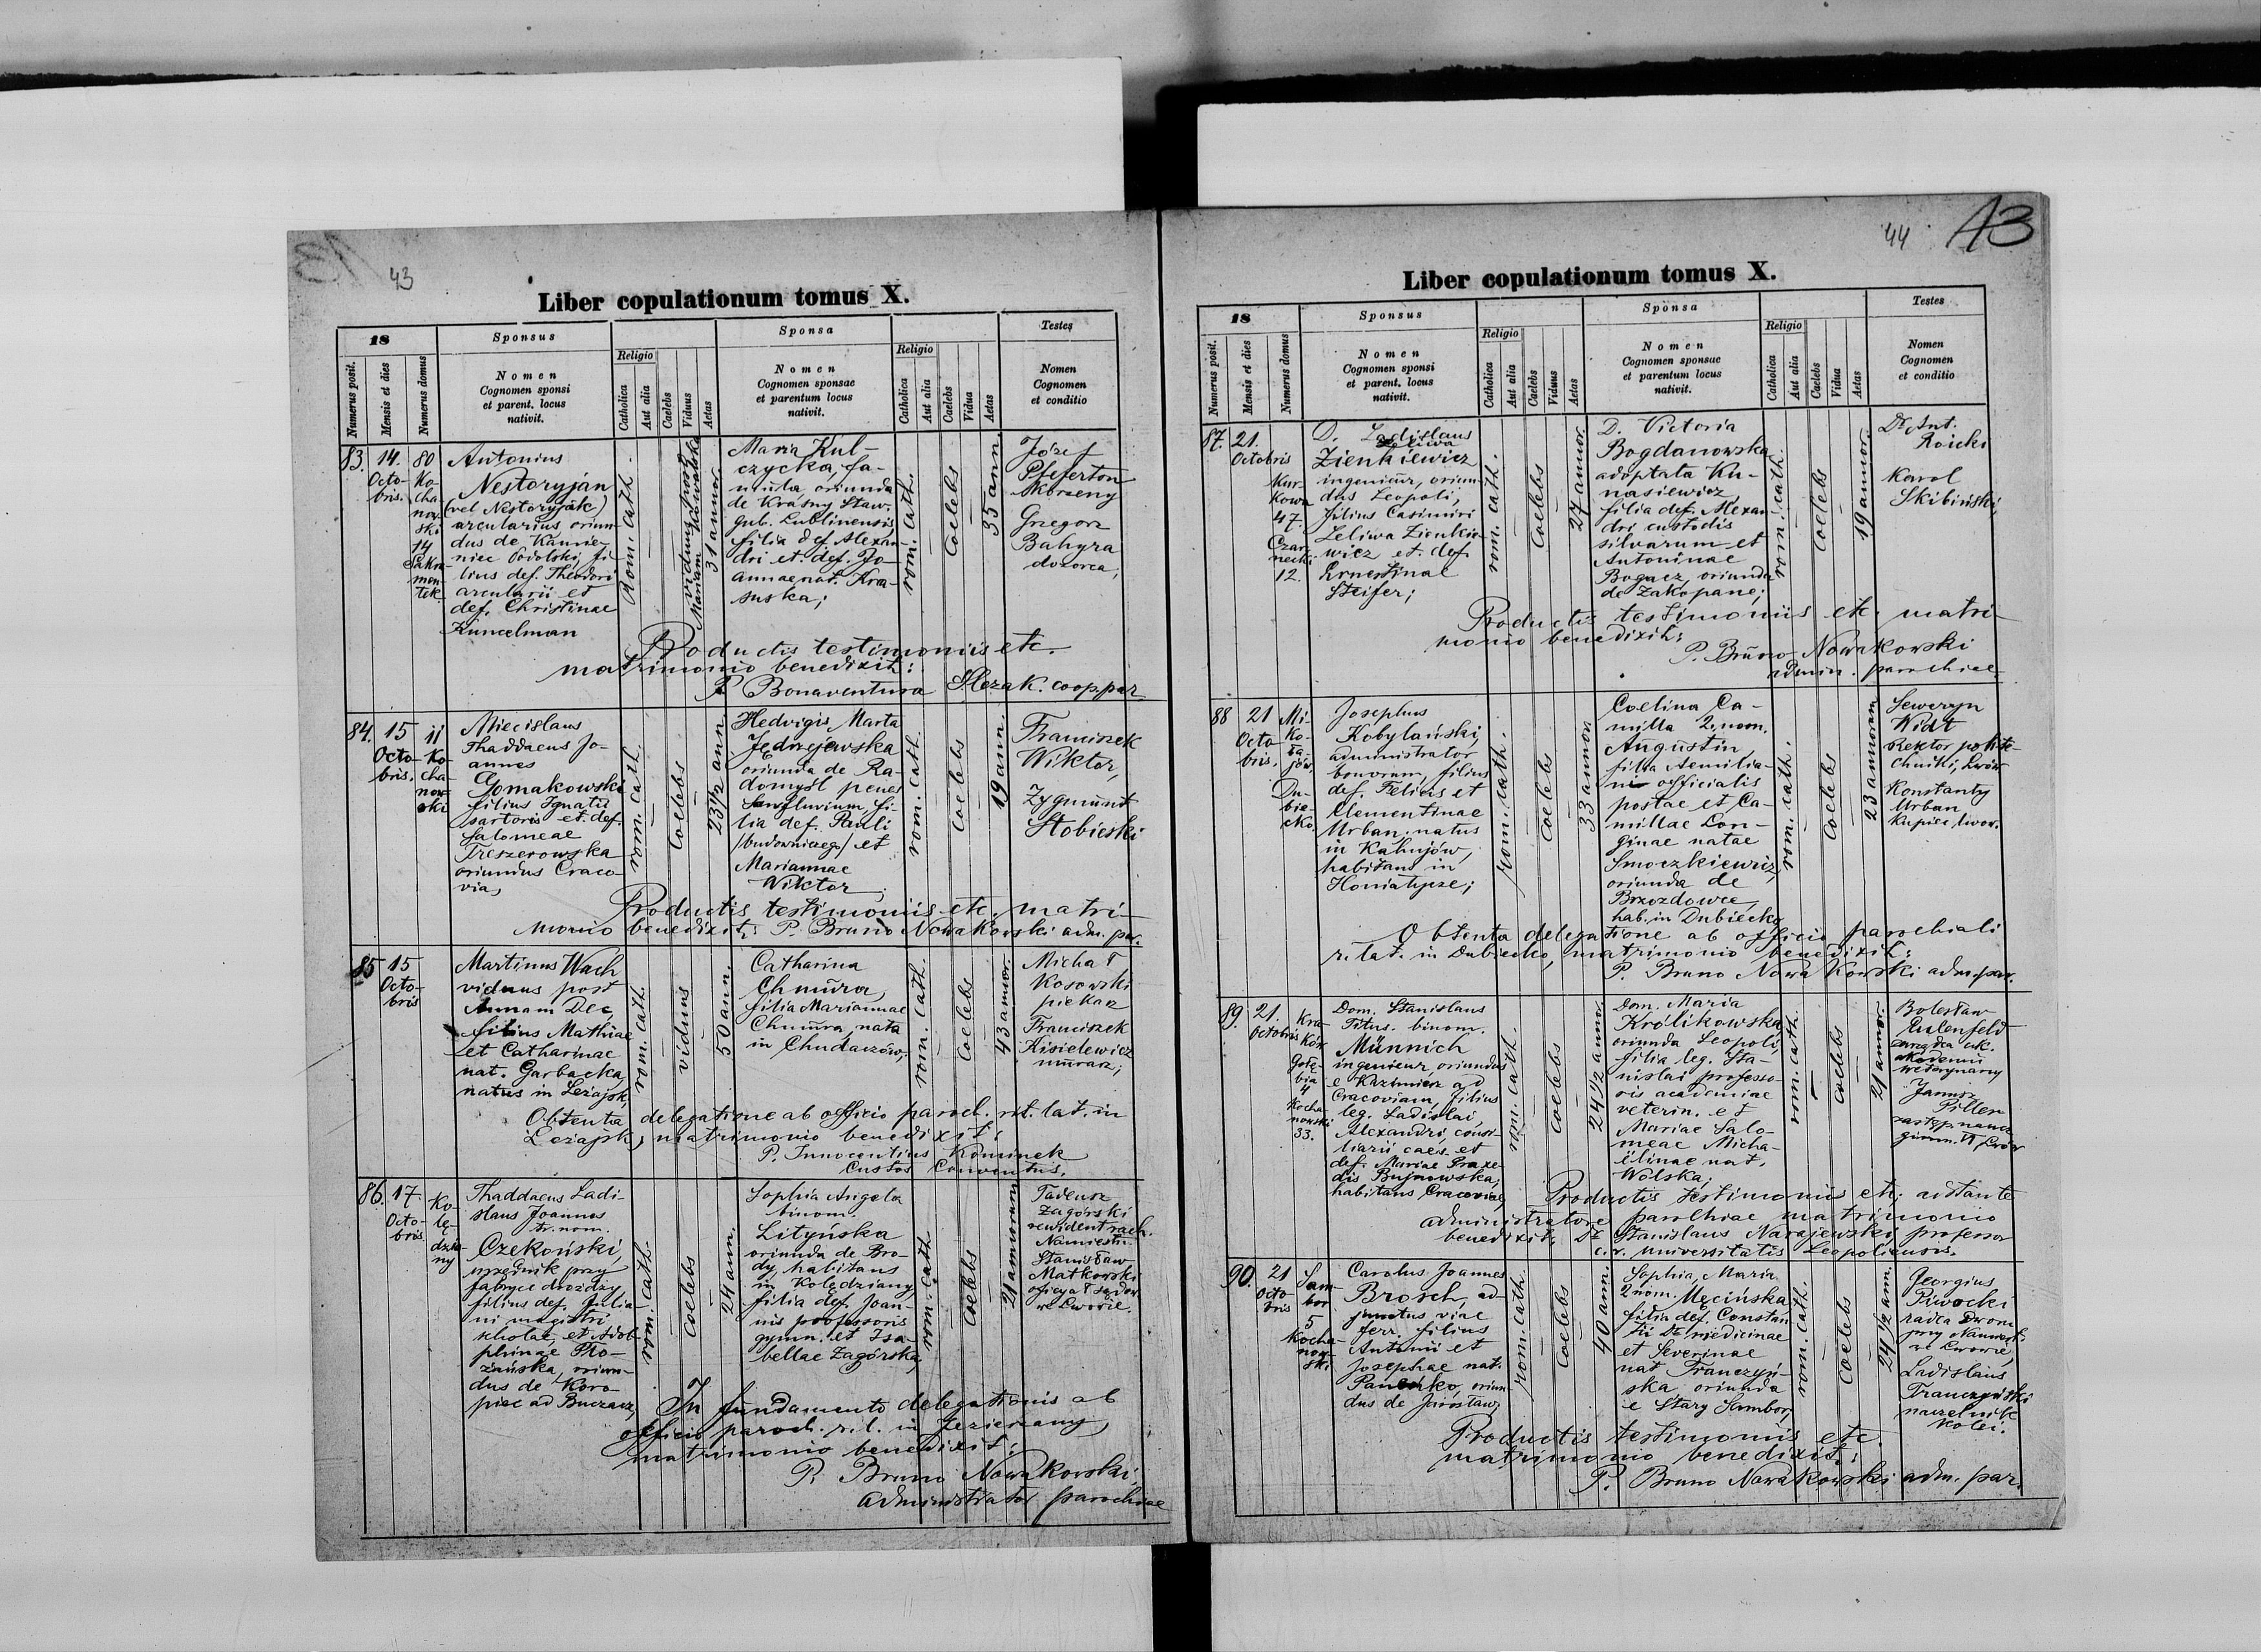 43
Liber copulationum tomus X.
18
Sponsus
Sponsa
Testes
Numerus posit.
Mensis et dies
Numerus domus
Nomen
Cognomen sponsi
et parent. locus
nativit.
Religio
Catholica
Aut alia
Caelebs
Viduus
Aetas
Nomen
Cognomen sponsae
et parentum locus
nativit.
Religio
Catholica
Aut alia
Caelebs
Vidua
Aetas
Nomen
Cognomen
et conditio
83.
14.
Octo-
bris.
80
Ko-
cha-
now-
ski
14
Sakra-
men-
tek
Antonius
Nestoryján
(vel Nestoryják)
arcularius oriun-
dus de Kamie-
niec Podolski, fi-
lius def. Theodori
arcularii et
def. Christinae
Kuncelman
Rom. cath.
viduus post
Mariam
31 annor.
Maria Kul-
czycka, fa-
mula, oriunda
de Krasny Staw.
gub. Lublinensis
filia def. Alexan-
dri et def. Jo-
annae nat. Kra-
suska;
rom. cath.
Coelebs
35 ann.
Józef
Pfeferton
Grzegorz
Bahyra
dozorca,
Productis testimoniis etc.
matrimonio benedixit:
P. Bonaventura Slezak. coop. par
84.
15
Octo-
bris.
11
Ko-
cha-
now-
ski
Miecislaus
Thaddaeus Jo-
annes
Gomakowski
filius Ignatii
sartoris et def.
Salomeae
Treszerowska
oriundus Craco-
via,
rom. cath.
Coelebs
23 1/2 ann.
Hedvigis Marta
Jędrzejewska
oriunda de Ra-
domyśl penes
San fluvium, fi-
lia def. Pauli
/budowniczego/ et
Mariannae
Wiktor
rom. cath.
Coelebs
19 ann.
Franciszek
Wiktor,
Zygmunt
Stobiecki
Productis testimoniis etc. matri-
monio benedixit: P. Bruno Nowakowski adm. par.
85
15
Octo-
bris
Martinus Wach
viduus post
Annam Dec,
filius Mathiae
et Catharinae
nat. Garbacka,
natus in Leżajsk,
rom. cath.
viduus
50 ann.
Catharina
Chmura,
filia Mariannae
Chmura, nata
in Chudaczów,
rom. cath.
Coelebs
43 annor.
Michał
Kosowski
piekarz
Franciszek
Kisielewicz
murarz;
Obtenta delegatione ab officio paroch. rit. lat. in
Leżajsk, matrimonio benedixit:
P. Innocentius Kominek
Custos Conventus.
86.
17
Octo-
bris
Ko-
lę-
dzia-
ny
Thaddaeus Ladi-
slaus Joannes
tr. nom.
Czekoński,
urzędnik przy
fabryce drożdży
filius def. Julia-
ni magistri
scholae, et Adol-
phinae Pło-
żańska, oriun-
dus de Koro-
piec ad Buczacz,
rom. cath.
Coelebs
24 ann.
Sophia Angela
binom.
Lityńska
oriunda de Bro-
dy, habitans
in Kolędziany,
filia def. Joan-
nis professoris
gymn. et Isa-
bellae Zagórska,
rom. cath.
Coelebs
21 annorum
Tadeusz
Zagórski
rewident rach.
Namiestn.
Stanisław
Matkowski
oficyał sądow.
we Lwowie.
In fundamento delegationis ab
officio paroch. r. l. in Jezierzany,
matrimonio benedixit:
P. Bruno Nowakowski,
administrator parochiae
44
43
Liber copulationum tomus X.
18
Sponsus
Sponsa
Testes
Numerus posit.
Mensis et dies
Numerus domus
Nomen
Cognomen sponsi
et parent. locus
nativit.
Religio
Catholica
Aut alia
Caelebs
Viduus
Aetas
Nomen
Cognomen sponsae
et parentum locus
nativit.
Religio
Catholica
Aut alia
Caelebs
Vidua
Aetas
Nomen
Cognomen
et conditio
87.
21.
Octobris
Kur-
kowa
47.
Czar-
necki
12.
D. Ladislaus
Leliwa
Zienkiewicz
ingenieur, oriun-
dus Leopoli,
filius Casimiri
Leliwa Zienkie-
wicz et def.
Ernestinae
Steifer;
rom. cath.
Coelebs
27 annor.
D. Victoria
Bogdanowska
adoptata Ku-
nasiewicz,
filia def. Alexan-
dri custodis
silvarum et
Antoninae
Bogacz, oriunda
de Zakopane;
rom. cath.
Coelebs
19 annor.
Dr Ant.
Roicki
Karol
Skibiński,
Productis testimoniis etc. matri-
monio benedixit:
P. Bruno Nowakowski
admin. parochiae
88
21
Octo-
bris.
Mi-
ko-
ła-
jów,
Du-
bie-
cko.
Josephus
Kobylański,
administrator
bonorum, filius
def. Felicis et
Clementinae
Urban. natus
in Kahujów,
habitans in
Honiatycze;
rom. cath.
Coelebs
33 annor.
Coelina Ca-
milla 2. nom.
Augustin,
filia Aemilia-
ni officialis
postae et Ca-
millae Lon-
ginae natae
Smoczkiewicz,
oriunda de
Brzozdowce,
hab. in Dubiecko,
rom. cath.
Coelebs
23 annorum
Seweryn
Widt
Rektor polite-
chniki, Lwów
Konstanty
Urban
kupiec, Lwow.
Obtenta delegatione ab officio parochiali
r. lat. in Dubiecko, matrimonio benedixit:
P. Bruno Nowakowski adm. par.
89.
21.
Octobris
Kra-
ków
Gołę-
bia
4
Kocha-
nowski
33.
Dom. Stanislaus
Titus. binom.
Münnich
ingenieur, oriundus
e Kazimierz ad
Cracoviam, filius
leg. Ladislai
Alexandri, consi-
liarii caes. et
def. Mariae Praxe-
dis Bujnowska,
habitans Cracoviae,
rom. cath.
Coelebs
24 1/2 annor.
Dom. Maria
Królikowska,
oriunda Leopoli,
filia leg. Sta-
nislai professo-
ris academiae
veterin. et
Mariae Salo-
meae Micha-
ëlinae nat.
Wolska;
rom. cath.
Coelebs
21 annor.
Bolesław
Eulenfeld
zarządca
akademii
weterynaryi
Janusz
Piller
zastęp. naucz.
gimn. Lwów
Productis testimoniis etc. adstante
administratore parochiae matrimonio
benedixit: Dr Stanislaus Narajewski professor
c. r. universitatis Leopoliensis.
90.
21
Octo-
bris
Sam-
bor
5
Kocha-
now-
ski
Carolus Joannes
Brosch, ad-
junctus viae
ferr. filius
Antonii et
Josephae nat.
Panenko, oriun-
dus de Jarosław,
rom. cath.
Coelebs
40 ann.
Sophia, Maria
2 nom. Męcińska,
filia def. Constan-
tii Dr medicinae
et Severinae
nat Tranczyń-
ska, oriunda
e Stary Sambor,
rom. cath.
Coelebs
24 1/2 ann.
Georgius
Piwocki
radca Dworu
przy Namiest.
we Lwowie,
Ladislaus
Tranczyński
naczelnik
kolei.
Productis testimoniis etc.
matrimonio benedixit:
P. Bruno Nowakowski adm. par.